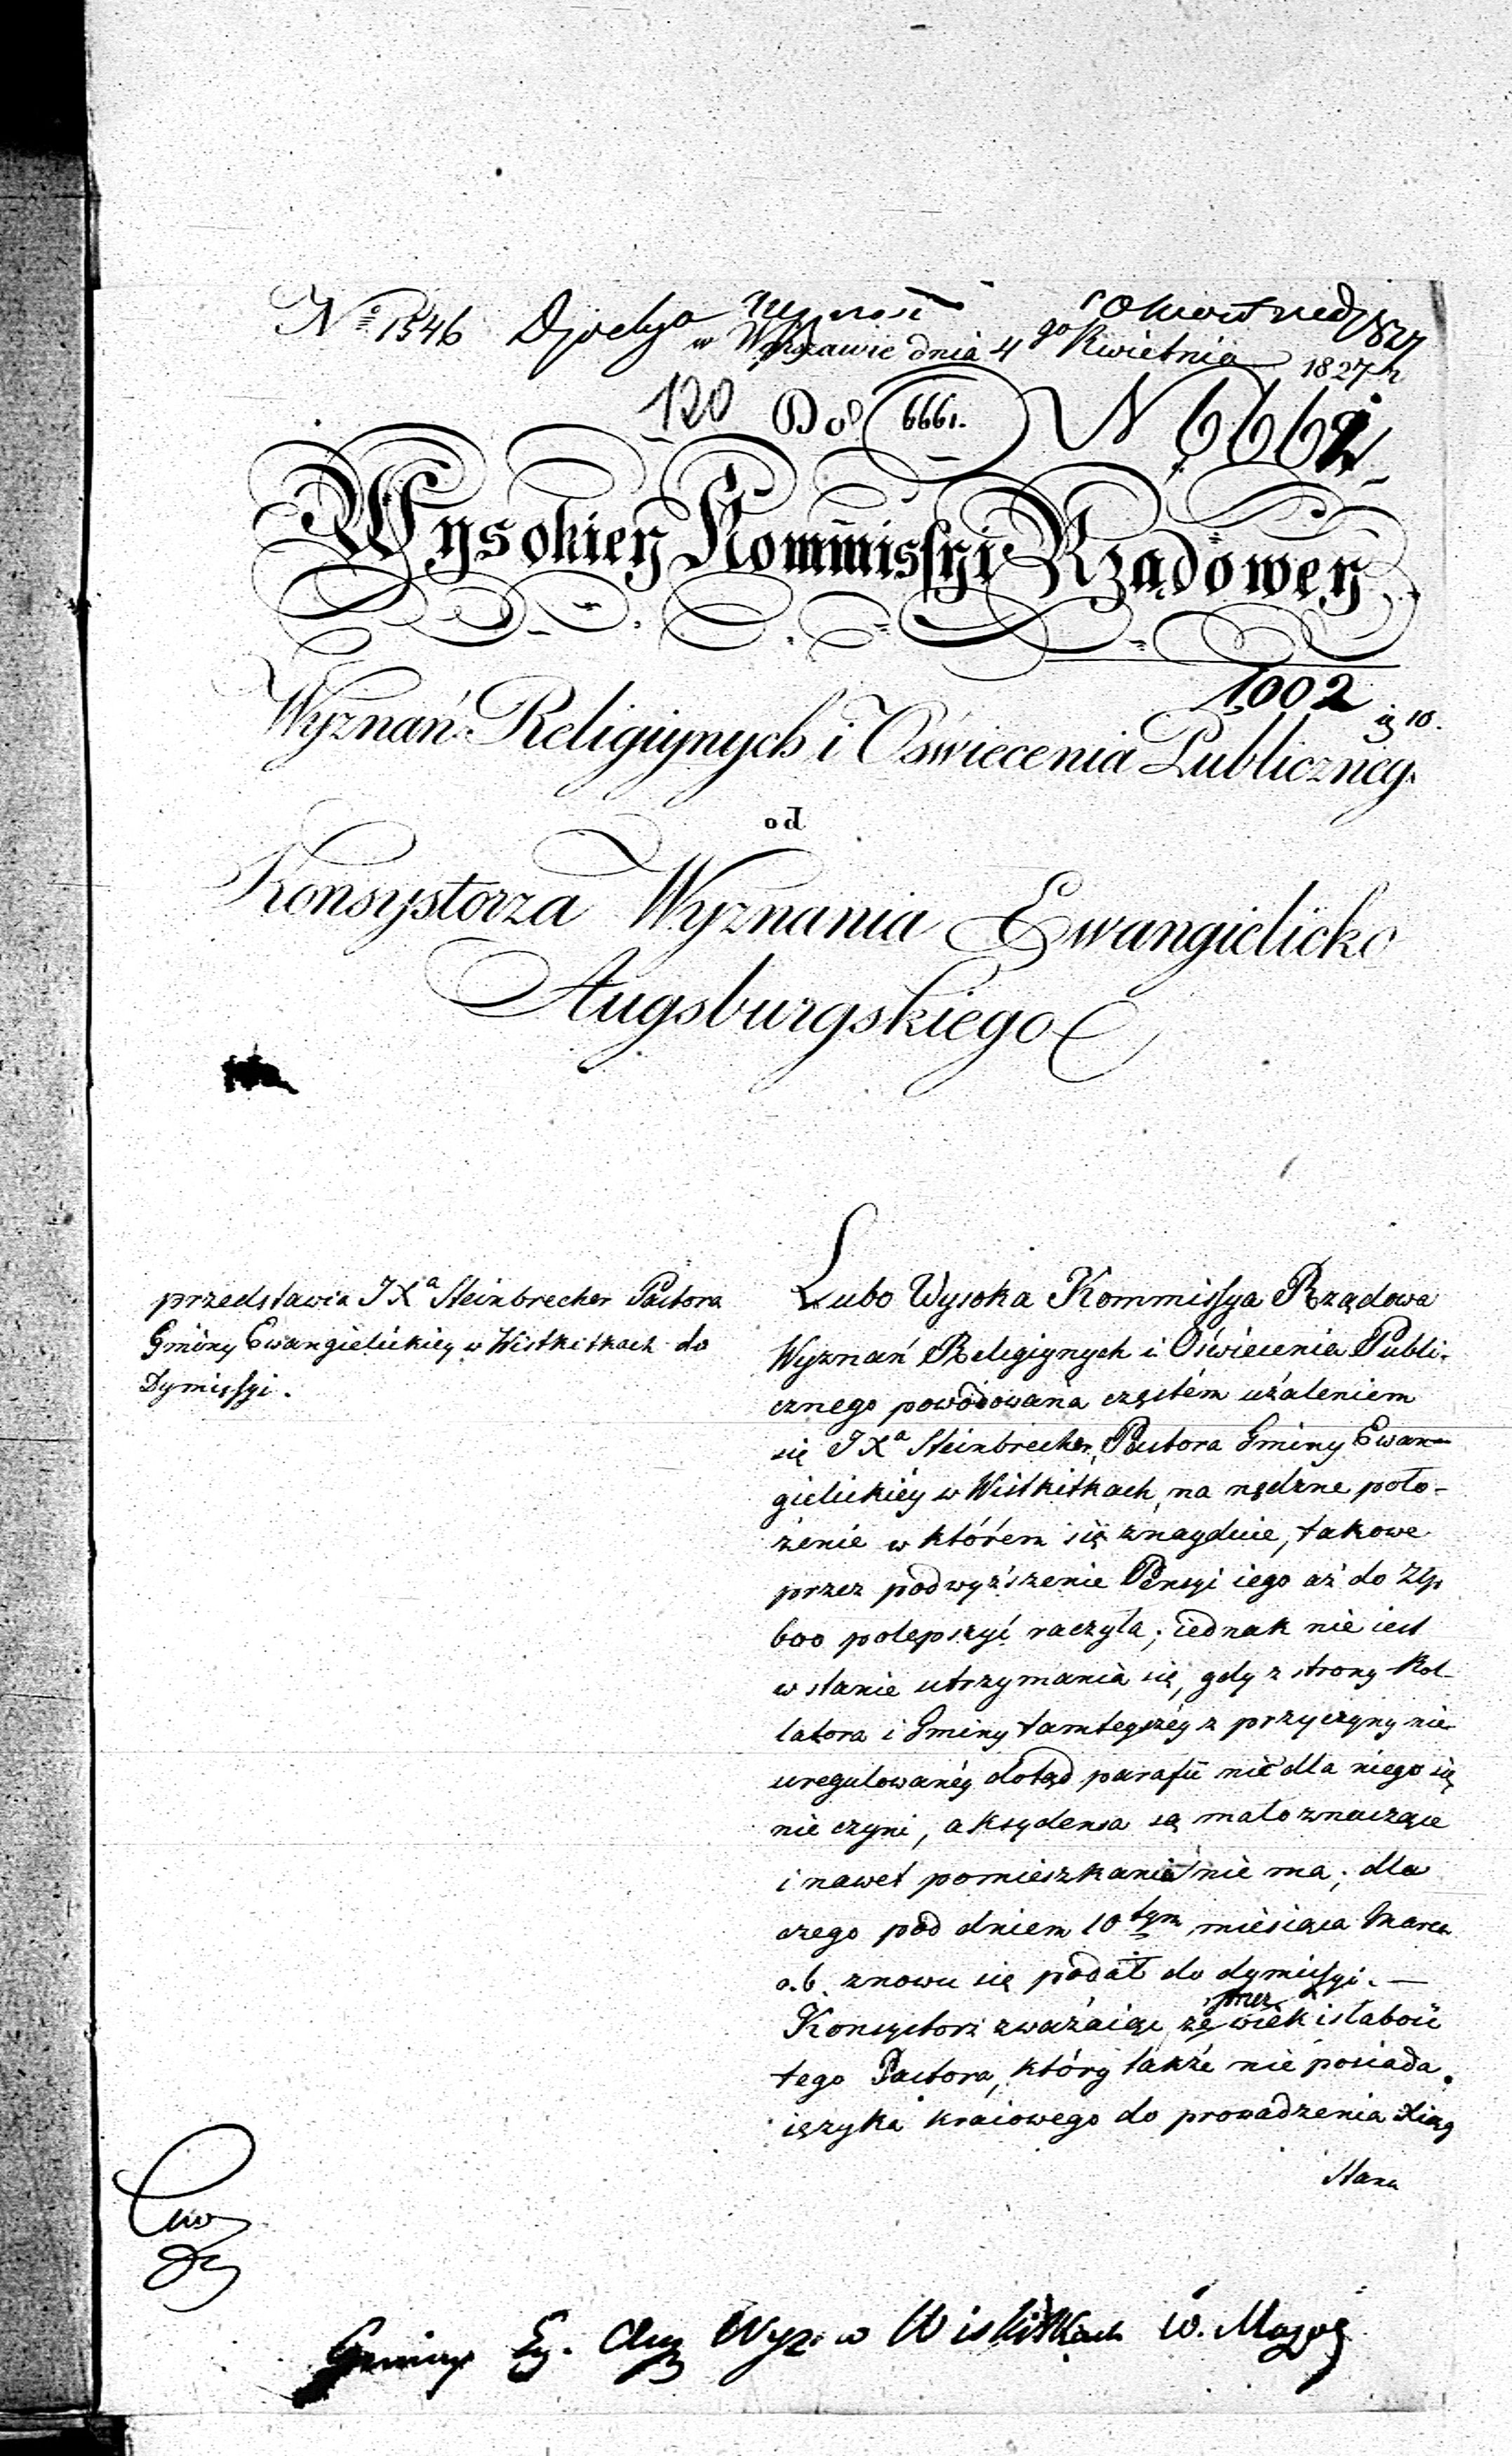 No 1546
w Warszawie dnia 4 go Kwietnia 1827 r
120 Do 6661. N 6661
Wysokiey Kommissyi Rządowey
1002
Wyznań Religiynych i Oświecenia Publicznego
od
Konsystorza Wyznania Ewangielicko
Augsburgskiego
przedstawia JXa Steinbrecher Pastora
Gminy Ewangielickiey w Wistkitkach do
Dymissyi.
Lubo Wysoka Kommissya Rządowa
Wyznań Religiynych i Oświecenia Publi-
cznego powodowana częstém użaleniem
się JXa Steinbrecher, Pastora Gminy Ewan-
gielickiéy w Wistkitkach, na nędzne poło-
żenie w którém się znayduie, takowe
przez podwyższenie Pensyi iego aż do Złp
600 polepszyć raczyła; iednak nie iest
w stanie utrzymania się, gdy z strony Kol-
latora i Gminy tamteyszéy z przyczyny nie
uregulowanéy dotąd parafii nic dla niego się
nie czyni, aksydensa są mało znaczące
i nawet pomieszkania nie ma; dla
czego pod dniem 10tym miesiąca Marca
o.b. znowu się podał do dymissyi. —
Konsystorz zważaiąc że przez wiek i słabość
tego Pastora, który także nie posiada
ięzyka kraiowego do prowadzenia Xiąg
Stanu
Gminy Ew. Aug Wyz. w Wiskitkach W. Mazow